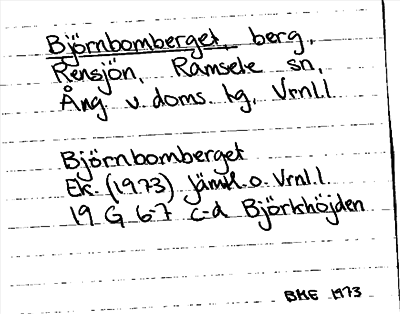 Björnbomberget, berg,
Rensjön, Ramsele sn,
Ång. v. doms. tg, Vrnl.l
Björnbomberget
Ek. (1973) Jämtl. o. Vrnl.l.
19 G 6-7 c-d Björkhöjden
BME 1973